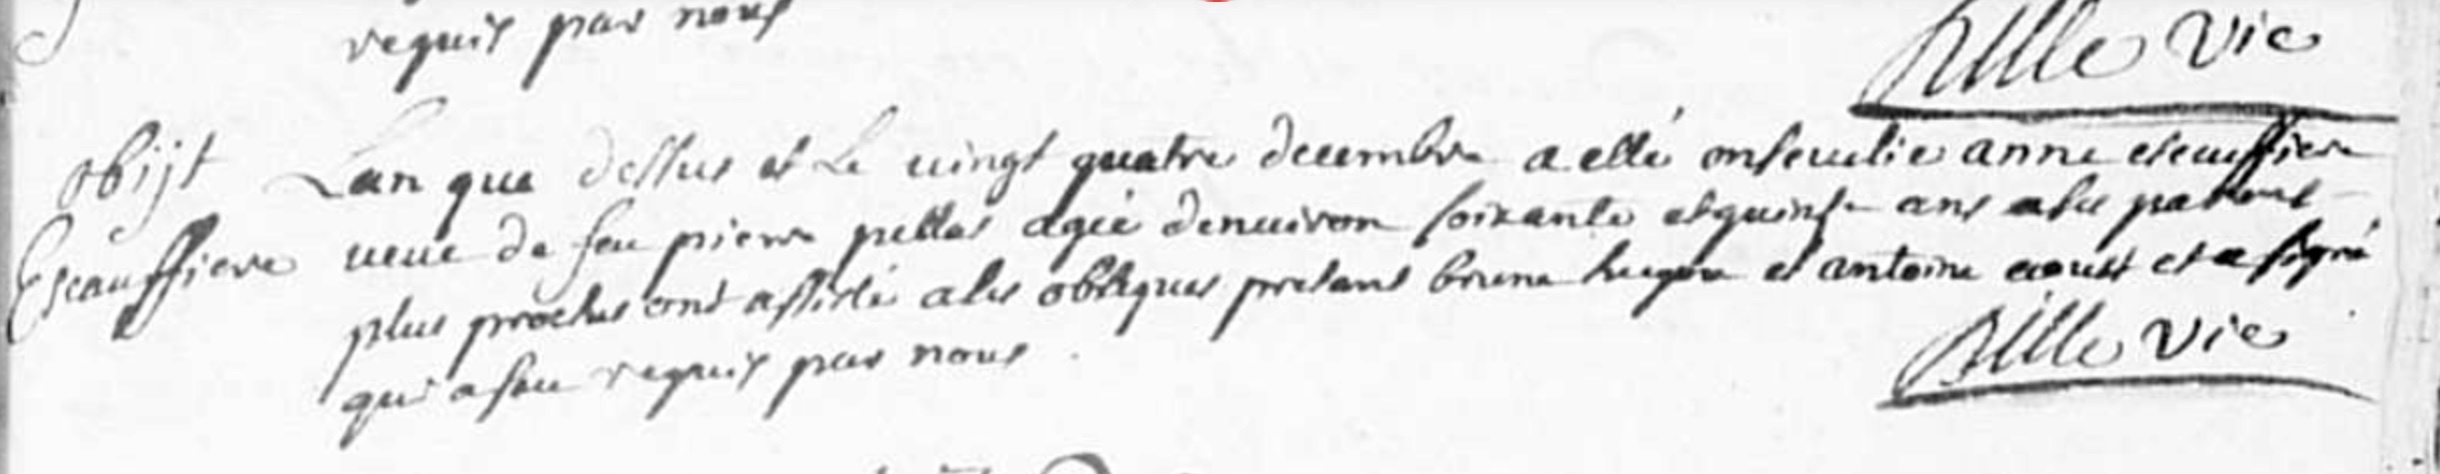 requis par nous
Rille vic
obijt Lan que dessus et Le vingt quatre decembre a esté ensevelie anne escauffiere
Escauffiere veuve de feu pierre pellas agée denuiron soixante et quinse ans ses parens
plus proches ont assisté a ses obseques presant brune hugon et antoine aoust et a signé
qui a sceu requis par nous .
Rille vic